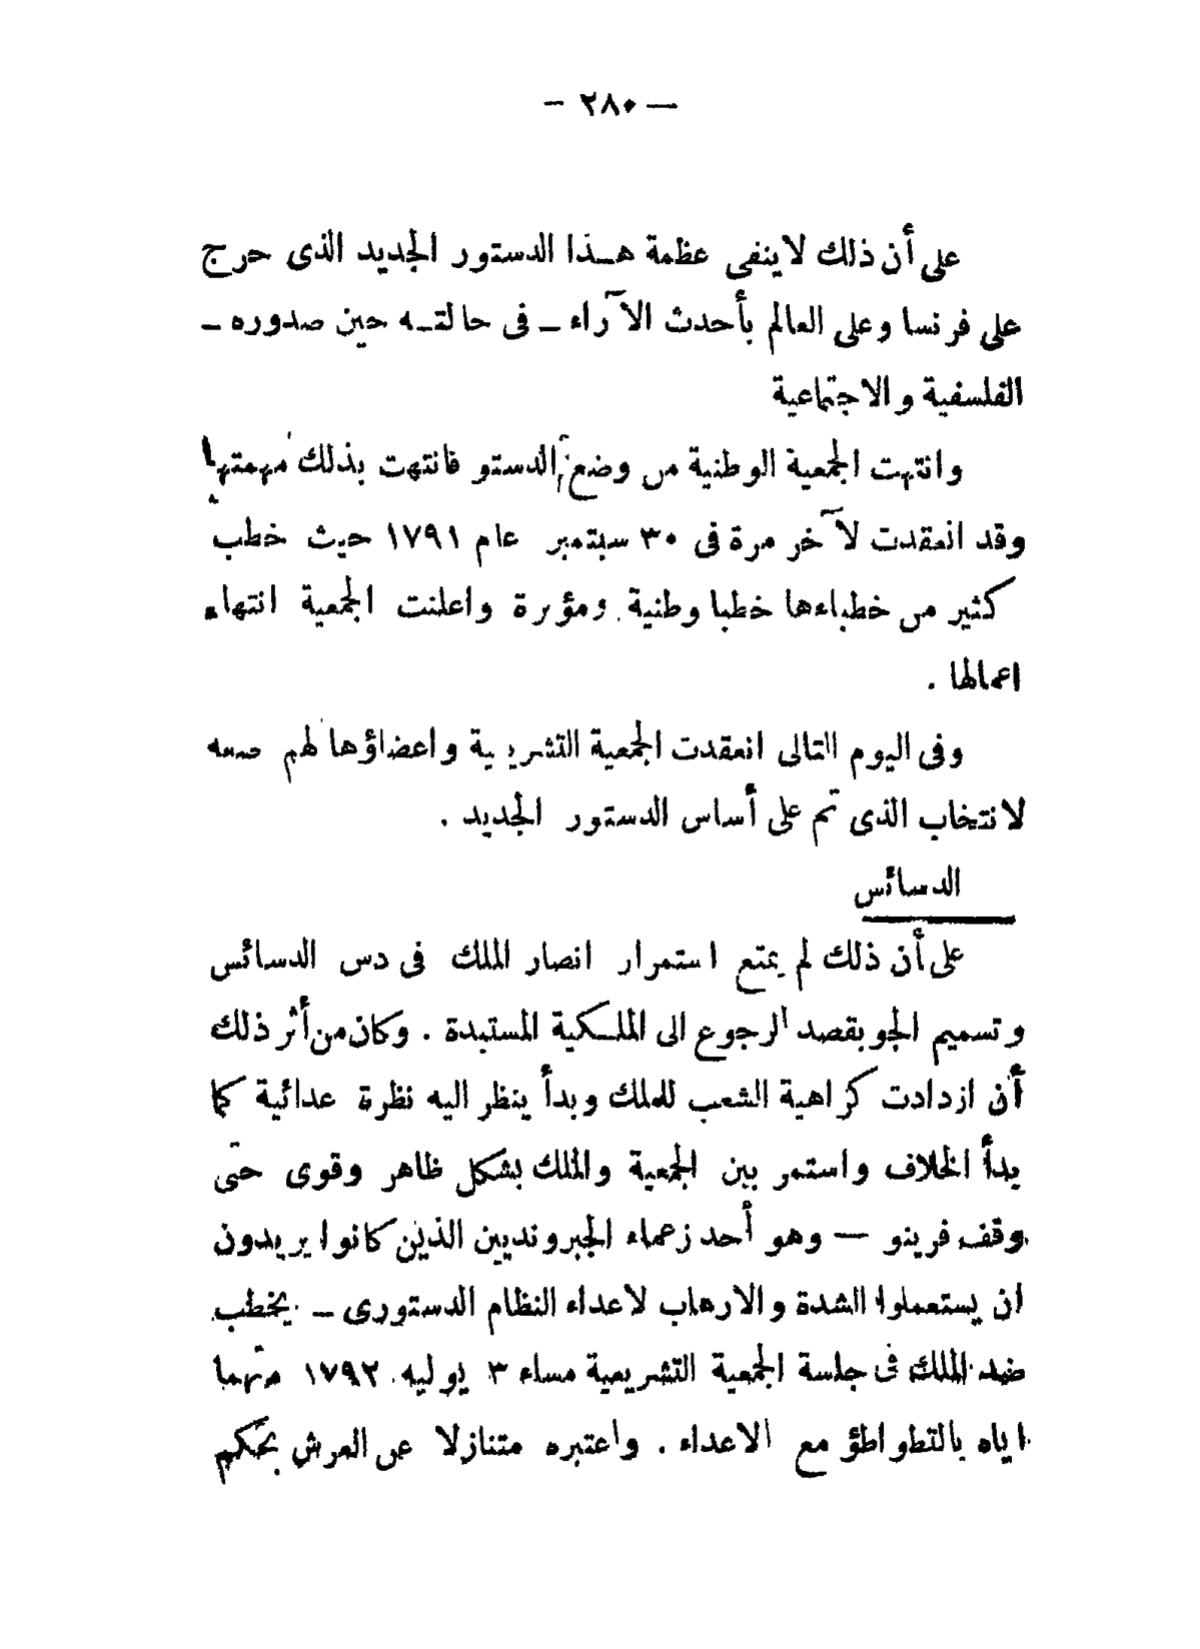 — ٢٨٠ —
على أن ذلك لاينفى عظمة هـذا الدستور الجديد الذى حرج
على فرنسا وعلى العالم بأحدث الآراء ــ فى حالتـه حين صدوره ــ
الفلسفية والاجتماعية
وانتهت الجمعية الوطنية من وضع الدستو فانتهت بذلك مهمتها
وقد انعقدت لآخر مرة فى ٣٠ سبتمبر عام ١٧٩١ حيث خطب
كثير من خطباءها خطبا وطنية ومؤثرة واعلنت الجمعية انتهاء
اعمالها .
وفى اليوم التالى انعقدت الجمعية التشريعية واعضاؤها لهم صفه
لانتخاب الذى تم على أساس الدستور الجديد .
الدسائس
على أن ذلك لم يمتع استمرار انصار الملك فى دس الدسائس
وتسميم الجو بقصد الرجوع الى الملـكية المستبدة . وكان من أثر ذلك
أن ازدادت كراهية الشعب للملك وبدأ ينظر اليه نظرة عدائية كما
بدأ الخلاف واستمر بين الجمعية والملك بشكل ظاهر وقوى حتى
وقف فرينو — وهو أحد زعماء الجيرونديين الذين كانوا يريدون
ان يستعملوا الشدة والارهاب لاعداء النظام الدستورى ــ يخطب
ضد الملك فى جلسة الجمعية التشريعية مساء ٣ يوليه ١٧٩٢ متهما
اياه بالتطواطؤ مع الاعداء . واعتبره متنازلا عن العرش بحكم